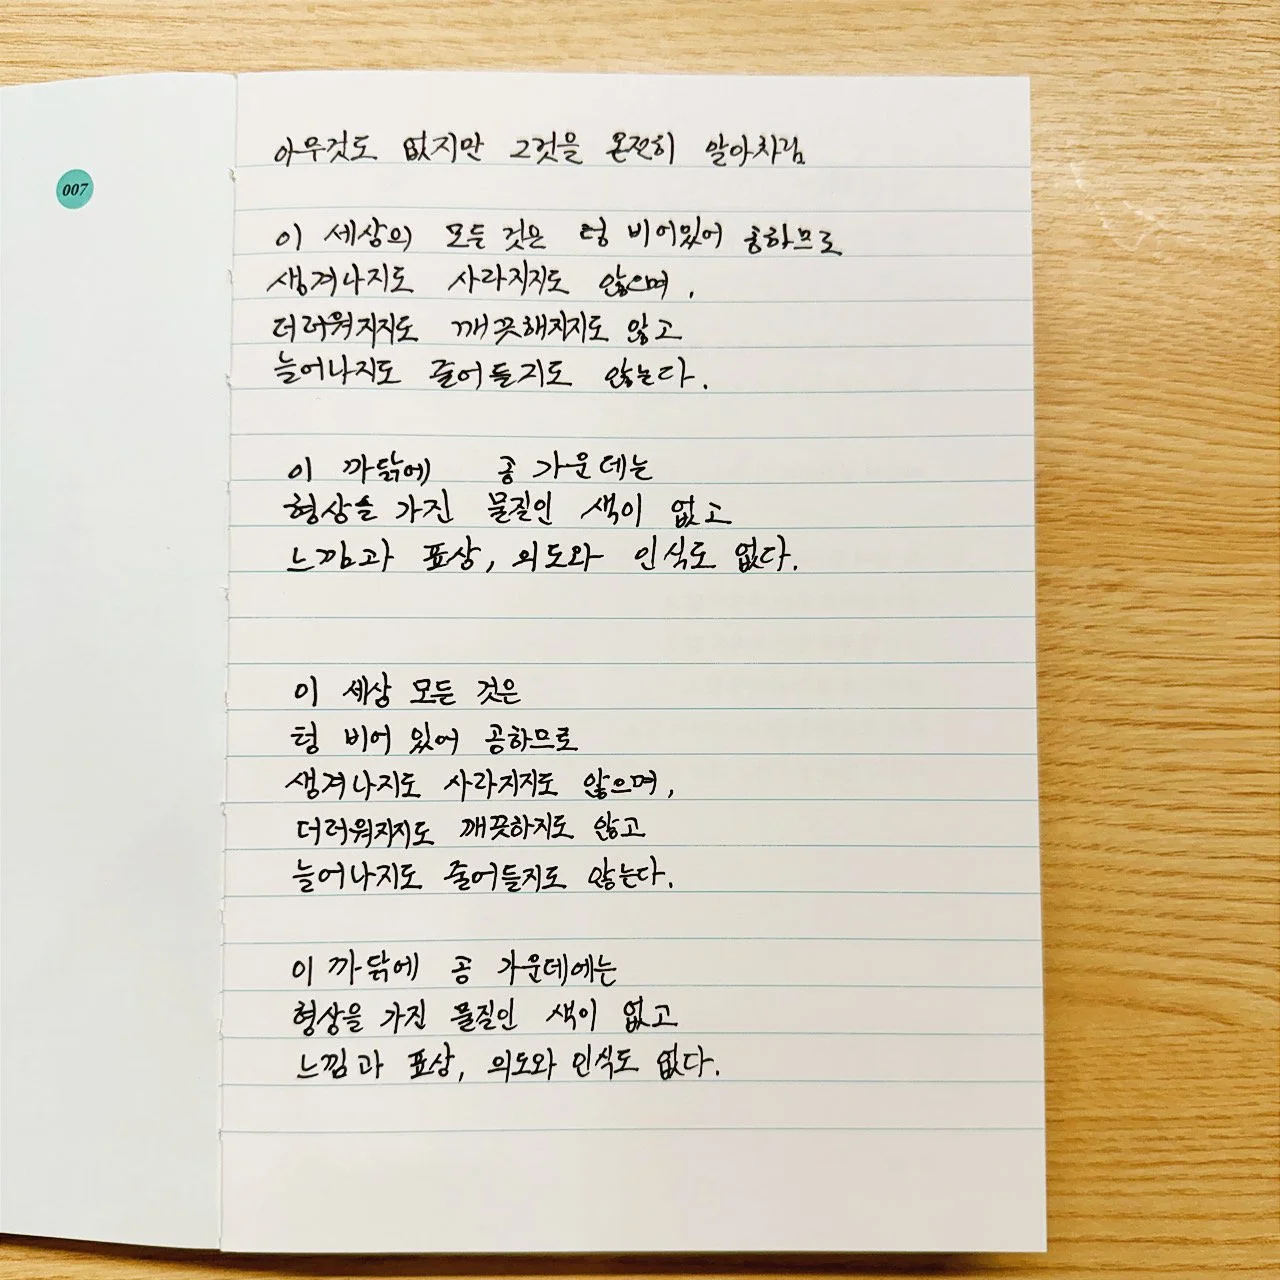 007
아무것도 없지만 그것을 온전히 알아차림
이 세상의 모든 것은 텅 비어있어 공하므로
생겨나지도 사라지지도 않으며,
더러워지지도 깨끗해지지도 않고
늘어나지도 줄어들지도 않는다.
이 까닭에 공 가운데는
형상을 가진 물질인 색이 없고
느낌과 표상, 의도와 인식도 없다.
이 세상 모든 것은
텅 비어 있어 공하므로
생겨나지도 사라지지도 않으며,
더러워지지도 깨끗하지도 않고
늘어나지도 줄어들지도 않는다.
이 까닭에 공 가운데에는
형상을 가진 물질인 색이 없고
느낌과 표상, 의도와 인식도 없다.